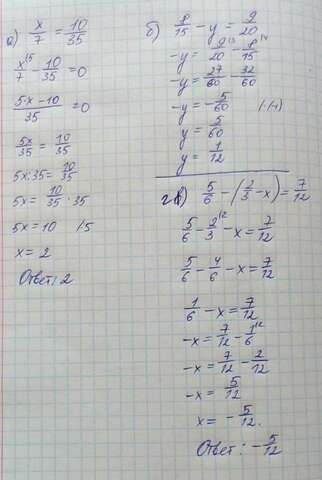 а) x/7 = 10/35
x^(5/7 - 10/35 = 0
(5x - 10)/35 = 0
5x/35 = 10/35
5x:35 = 10/35
5x = 10/35 · 35
5x = 10 /:5
x = 2
Ответ: 2
б) 8/15 - y = 9/20
-y = 9/20 - 8/15
-y = 27/60 - 32/60
-y = -5/60 (·(-1)
y = 5/60
y = 1/12
в) 5/6 - (2/3 - x) = 7/12
5/6 - 2/3 - x = 7/12
5/6 - 4/6 - x = 7/12
1/6 - x = 7/12
-x = 7/12 - 1/6
-x = 7/12 - 2/12
-x = 5/12
x = -5/12.
Ответ: -5/12